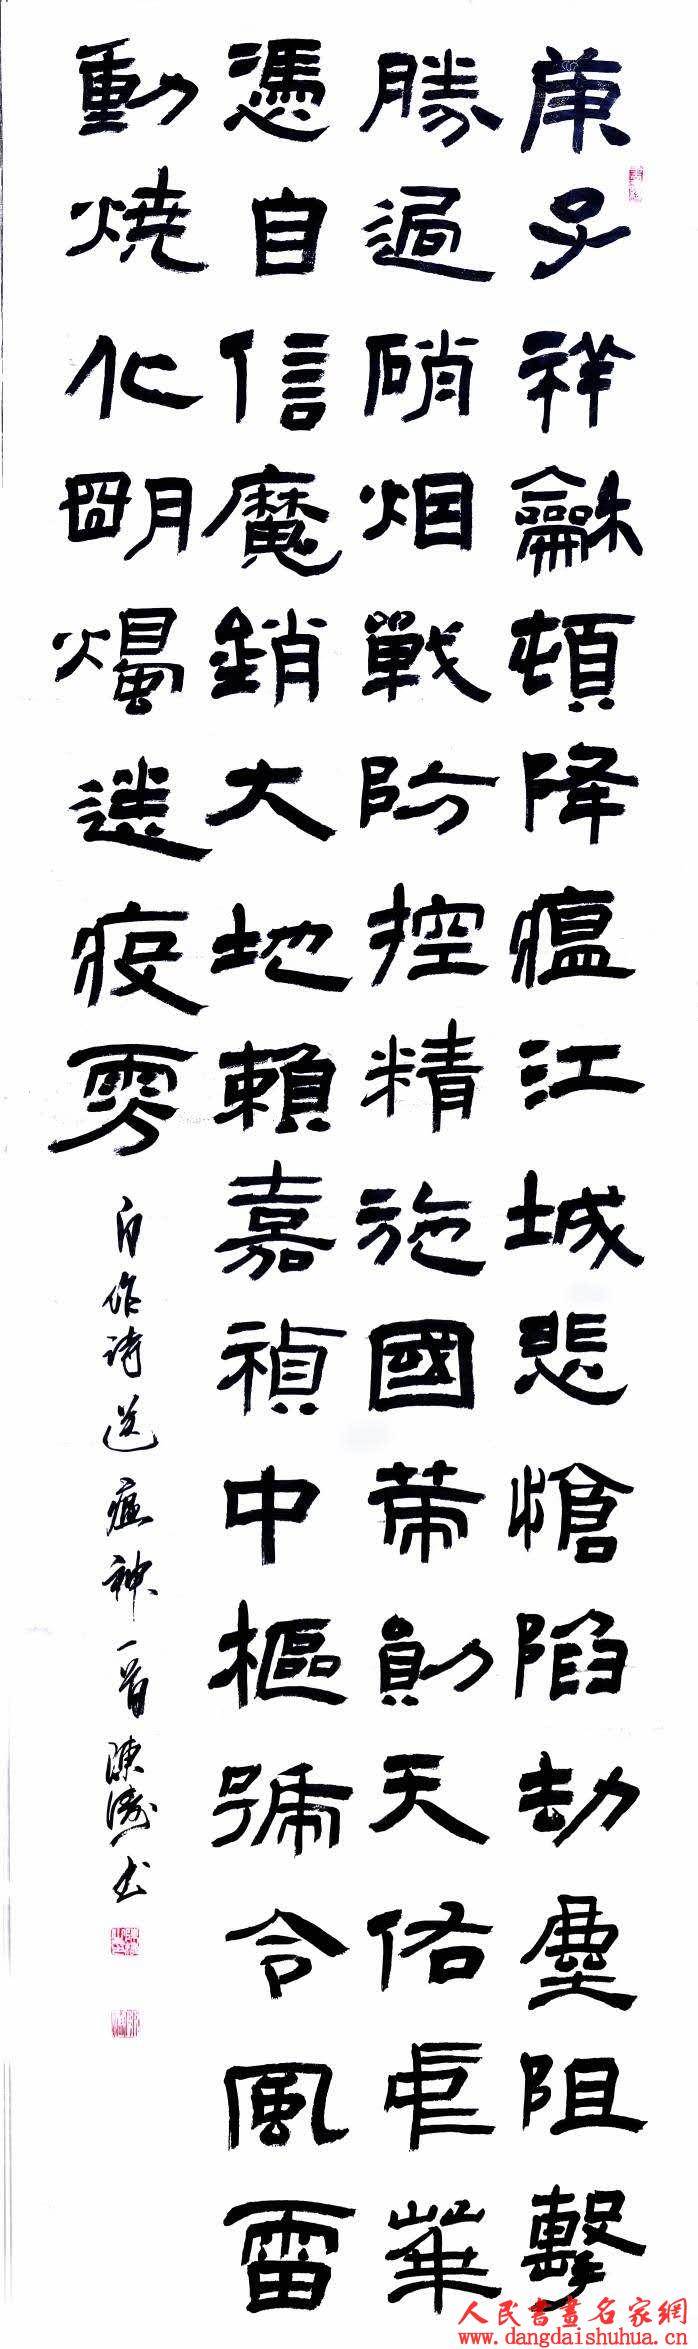 庚子祥龢頓降瘟江城悲愴陷劫塵阻擊
勝過硝烟戰防控精施國勛天佑中華
憑自信魔銷大地賴嘉禎中樞號令風雷
動燒化明燭送疫雰
自作詩送瘟神一首陳濤书
人民書畫名家網
www.dangdaishuhua.cn